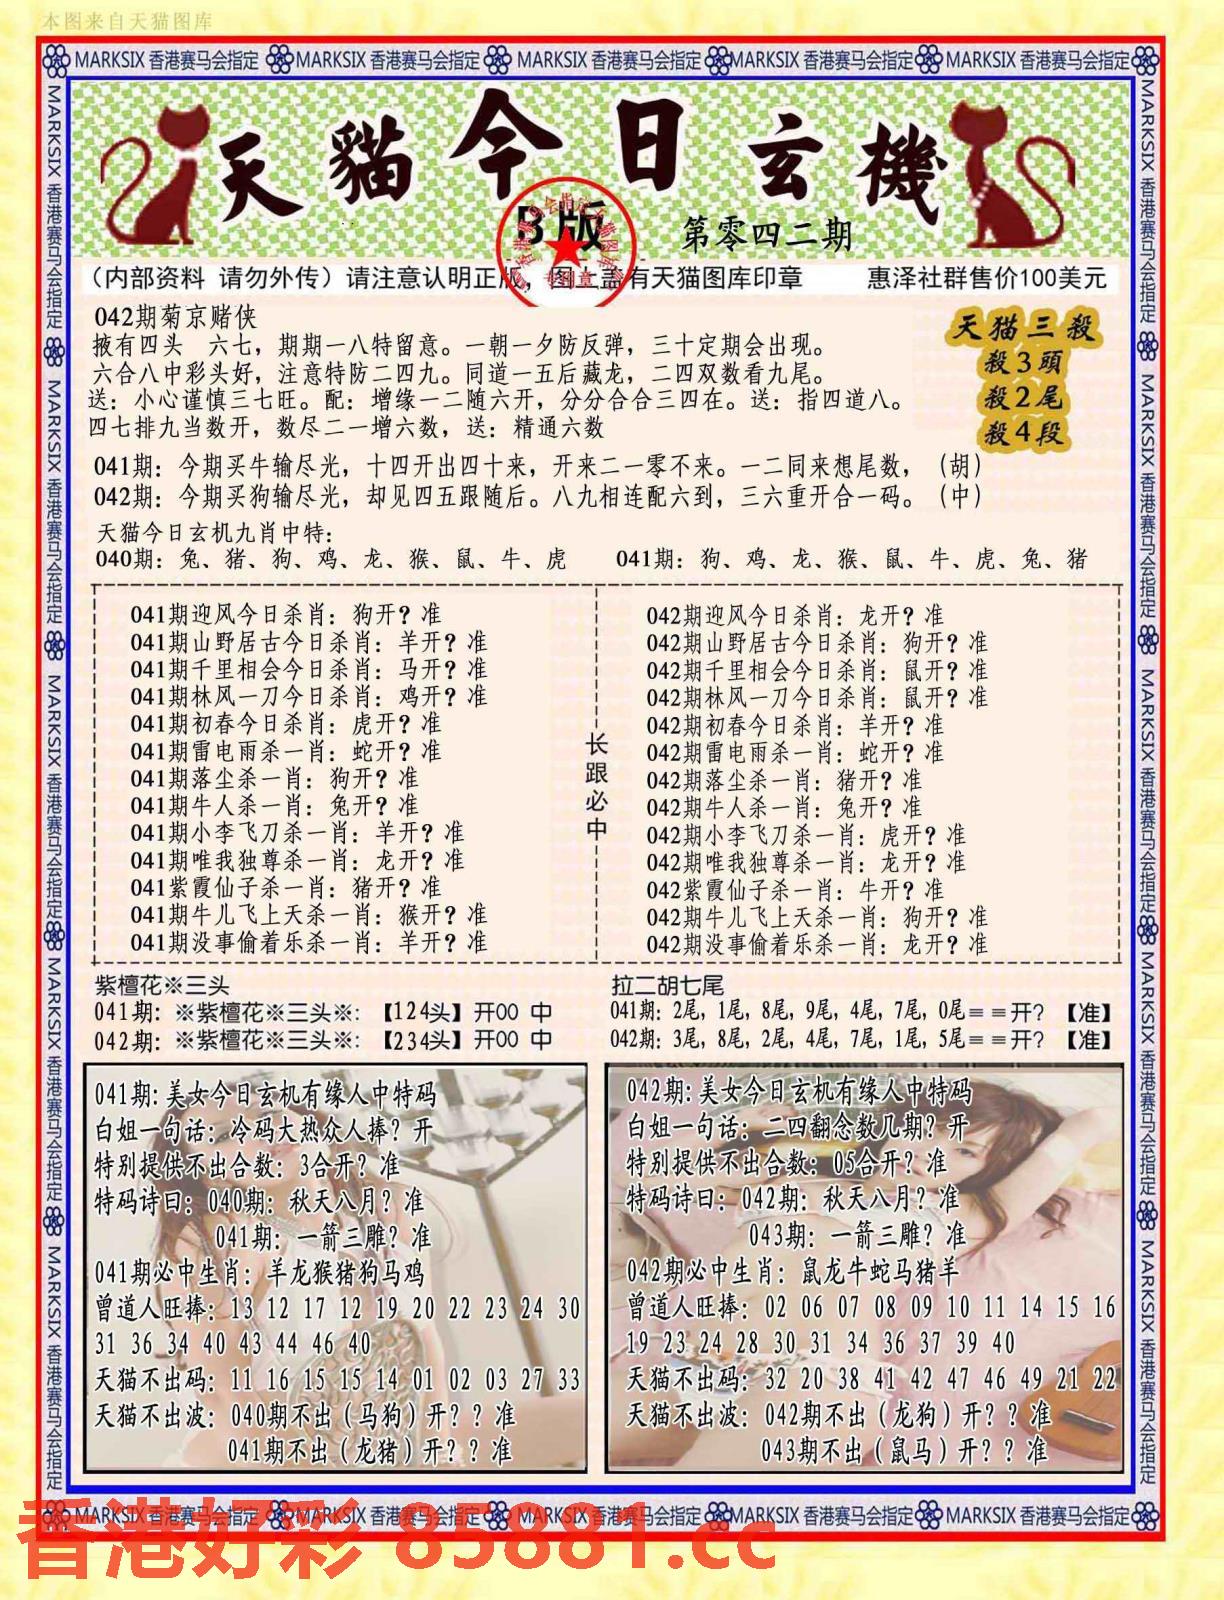 本图来自天猫图库
MARKSIX 香港赛马会指定 MARKSIX 香港赛马会指定 MARKSIX 香港赛马会指定 MARKSIX 香港赛马会指定 MARKSIX 香港赛马会指定
MARKSIX 香港赛马会指定 MARKSIX 香港赛马会指定 MARKSIX 香港赛马会指定 MARKSIX 香港赛马会指定 MARKSIX 香港赛马会指定
MARKSIX 香港赛马会指定 MARKSIX 香港赛马会指定 MARKSIX 香港赛马会指定 MARKSIX 香港赛马会指定 MARKSIX 香港赛马会指定
天貓今日玄機
B版
第零四二期
(内部资料 请勿外传) 请注意认明正版，图上盖有天猫图库印章 惠泽社群售价100美元
042期菊京赌侠
掖有四头 六七，期期一八特留意。一朝一夕防反弹，三十定期会出现。
六合八中彩头好，注意特防二四九。同道一五后藏龙，二四双数看九尾。
送：小心谨慎三七旺。配：增缘一二随六开，分分合合三四在。送：指四道八。
四七排九当数开，数尽二一增六数，送：精通六数
天猫三殺
殺3頭
殺2尾
殺4段
041期：今期买牛输尽光，十四开出四十来，开来二一零不来。一二同来想尾数，（胡）
042期：今期买狗输尽光，却见四五跟随后。八九相连配六到，三六重开合一码。（中）
天猫今日玄机九肖中特：
040期：兔、猪、狗、鸡、龙、猴、鼠、牛、虎 041期：狗、鸡、龙、猴、鼠、牛、虎、兔、猪
041期迎风今日杀肖：狗开？准
041期山野居古今日杀肖：羊开？准
041期千里相会今日杀肖：马开？准
041期林风一刀今日杀肖：鸡开？准
041期初春今日杀肖：虎开？准
041期雷电雨杀一肖：蛇开？准
041期落尘杀一肖：狗开？准
041期牛人杀一肖：兔开？准
041期小李飞刀杀一肖：羊开？准
041期唯我独尊杀一肖：龙开？准
041紫霞仙子杀一肖：猪开？准
041期牛儿飞上天杀一肖：猴开？准
041期没事偷着乐杀一肖：羊开？准
长跟必中
042期迎风今日杀肖：龙开？准
042期山野居古今日杀肖：狗开？准
042期千里相会今日杀肖：鼠开？准
042期林风一刀今日杀肖：鼠开？准
042期初春今日杀肖：羊开？准
042期雷电雨杀一肖：蛇开？准
042期落尘杀一肖：猪开？准
042期牛人杀一肖：兔开？准
042期小李飞刀杀一肖：虎开？准
042期唯我独尊杀一肖：龙开？准
042紫霞仙子杀一肖：牛开？准
042期牛儿飞上天杀一肖：狗开？准
042期没事偷着乐杀一肖：龙开？准
紫檀花※三头
041期：※紫檀花※三头※：【124头】开00 中
042期：※紫檀花※三头※：【234头】开00 中
拉二胡七尾
041期：2尾，1尾，8尾，9尾，4尾，7尾，0尾＝＝开？【准】
042期：3尾，8尾，2尾，4尾，7尾，1尾，5尾＝＝开？【准】
041期：美女今日玄机有缘人中特码
白姐一句话：冷码大热众人捧？开
特别提供不出合数：3合开？准
特码诗曰：040期：秋天八月？准
041期：一箭三雕？准
041期必中生肖：羊龙猴猪狗马鸡
曾道人旺捧：13 12 17 12 19 20 22 23 24 30
31 36 34 40 43 44 46 40
天猫不出码：11 16 15 15 14 01 02 03 27 33
天猫不出波：040期不出（马狗）开？？准
041期不出（龙猪）开？？准
042期：美女今日玄机有缘人中特码
白姐一句话：二四翻念数几期？开
特别提供不出合数：05合开？准
特码诗曰：042期：秋天八月？准
043期：一箭三雕？准
042期必中生肖：鼠龙牛蛇马猪羊
曾道人旺捧：02 06 07 08 09 10 11 14 15 16
19 23 24 28 30 31 34 36 37 39 40
天猫不出码：32 20 38 41 42 47 46 49 21 22
天猫不出波：042期不出（龙狗）开？？准
043期不出（鼠马）开？？准
MARKSIX 香港赛马会指定 MARKSIX 香港赛马会指定 MARKSIX 香港赛马会指定 MARKSIX 香港赛马会指定 MARKSIX 香港赛马会指定
香港好彩 85881.cc